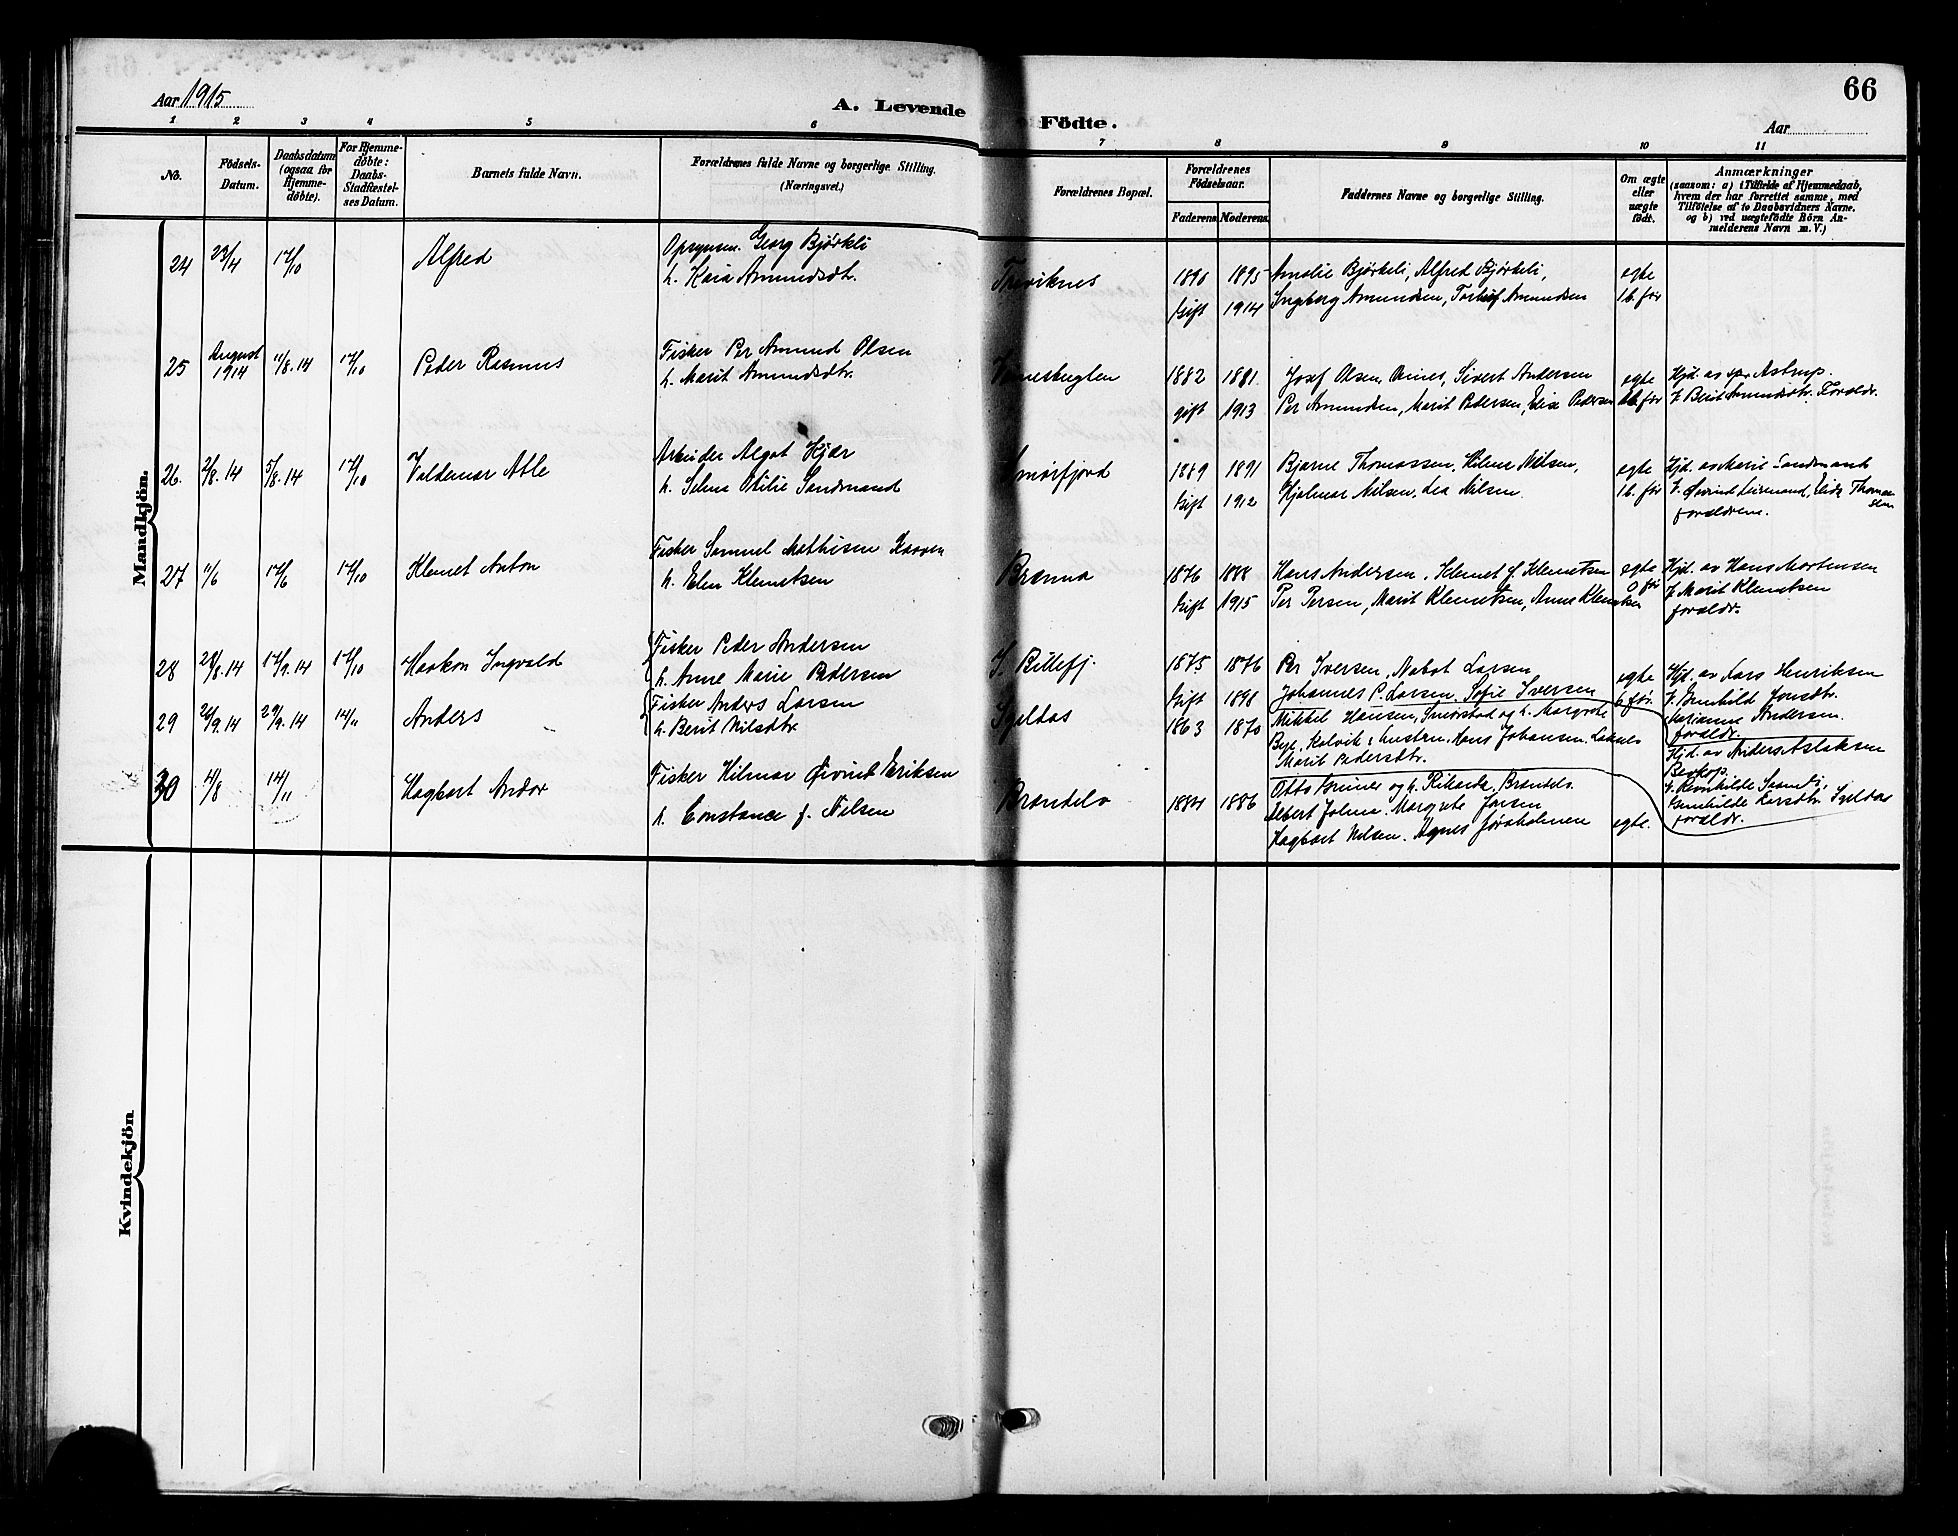 66
Aar 1915
A. Levende Födte.
Aar
1 2 3 4 5 6 7 8 9 10 11
No.
Födsels-
Datum.
Daabsdatum
(ogsaa for
Hjemme-
döbte).
For Hjemme-
döbte:
Daabs-
Stadfæstel-
ses Datum.
Barnets fulde Navn.
Forældrenes fulde Navne og borgerlige Stilling.
(Næringsvei.)
Forældrenes Bopæl.
Forældrenes
Födselsaar.
Faderens. Moderens.
Faddernes Navne og borgerlige Stilling.
Om ægte
eller
uægte
födt.
Anmærkninger
(saasom: a) i Tilfælde af Hjemmedaab,
hvem der har forrettet samme, med
Tilföielse af to Daabsvidners Navne,
og b) ved uægtefödte Börn An-
melderens Navn m. V.)
Mandkjön.
24 23/4 17/10 Alfred
Opsynsm. Georg Bjørkli
h. Kaia Amundsdtr.
1890 1895
Gift 1914
Amalie Bjørkeli, Alfred Bjørkeli,
Ingeborg Amundsen, Torleif Amundsen
egte
1 b. før
25 August
1914
11/8.14 17/10 Peder Rasmus
Fisker Per Amund Olsen
h. Marit Amundsdtr.
1882 1881.
gift 1913
Josef Olsen, Sivert Andersen
Per Amundsen, Marit Pedersen, Elise Pedersen
egte
før
Hjd. av spr Astrup.
V. Berit Amundsdtr. Foreldr.
26. 2/8.14 5/8.14 17/10 Valdemar Atle
Arbeider Algot Hjær
h. Selma Otilie Sandmand
Smørfjord
1889 1891
Gift 1912
Bjarne Thomassen, Hilma Nilsen,
Hjalmar Nilsen, Lea Nilsen.
egte
1 b. før
Hjd. av Marie Sandmand
V. Øivind Sandmand, Elida Thomas-
sen
foreldrene.
27 11/6 17/6 17/10 Klemet Anton
Fisker Samuel Mathisen Karven
h. Elen Klemetsen
Brenna
1876 1888
Gift 1915
Hans Andersen, Klemet J. Klemetsen
Per Persen, Marit Klemetsen, Anne Klemetsen
egte
0 før
Hjd. av Hans Mortensen
V. Marit Klemetsen
foreldr.
28 28/8.14 17/9.14 17/10 Haakon Ingvald
Fisker Peder Andersen
h. Anne Marie Pedersen
I. Billefj.
1875 1876
Gift 1898
Per Iversen, Nabot Larsen
Johannes P. Larsen, Sofie Iversen
egte
6 før.
Hjd. av Lars Henriksen
V. Gunhild Jonsdtr.
Marianne Andersen.
foreldr.
29 26/9.14 29/9.14 14/11 Anders
Fisker Anders Larsen
h. Berit Nilsdtr.
1863 1870
Mikkel Hansen, Smørstad og h. Margrete
Bye, Kolvik, Hans Johansen, Lakselv
Marit Pedersdtr.
Hjd. av Anders Aslaksen
Beskop.
foreldr.
30 11/8 14/11 Hagbart Andor
Fisker Hilmar Øivind Eriksen
h. Constance f. Nilsen
Brændelv
1884 1886
Otto Bruner og h. Rikarda, Brændelv
Albert Johns. Margrete Jansen
Hagbart Nilsen. Agnes Jøraholmen
egte.
Kvindekjön